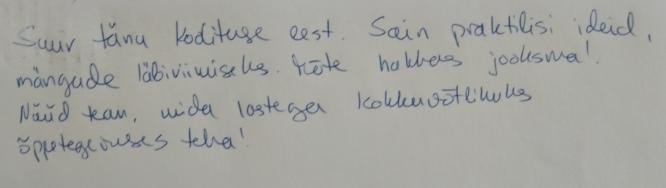 Suur tänu koolituse eest. Sain praktilisi ideid,
mängude läbiviimiseks. Mõte hakkas jooksma!
Nüüd tean, mida lastega kokkuvõtlikuks
õppetegevuses teha!